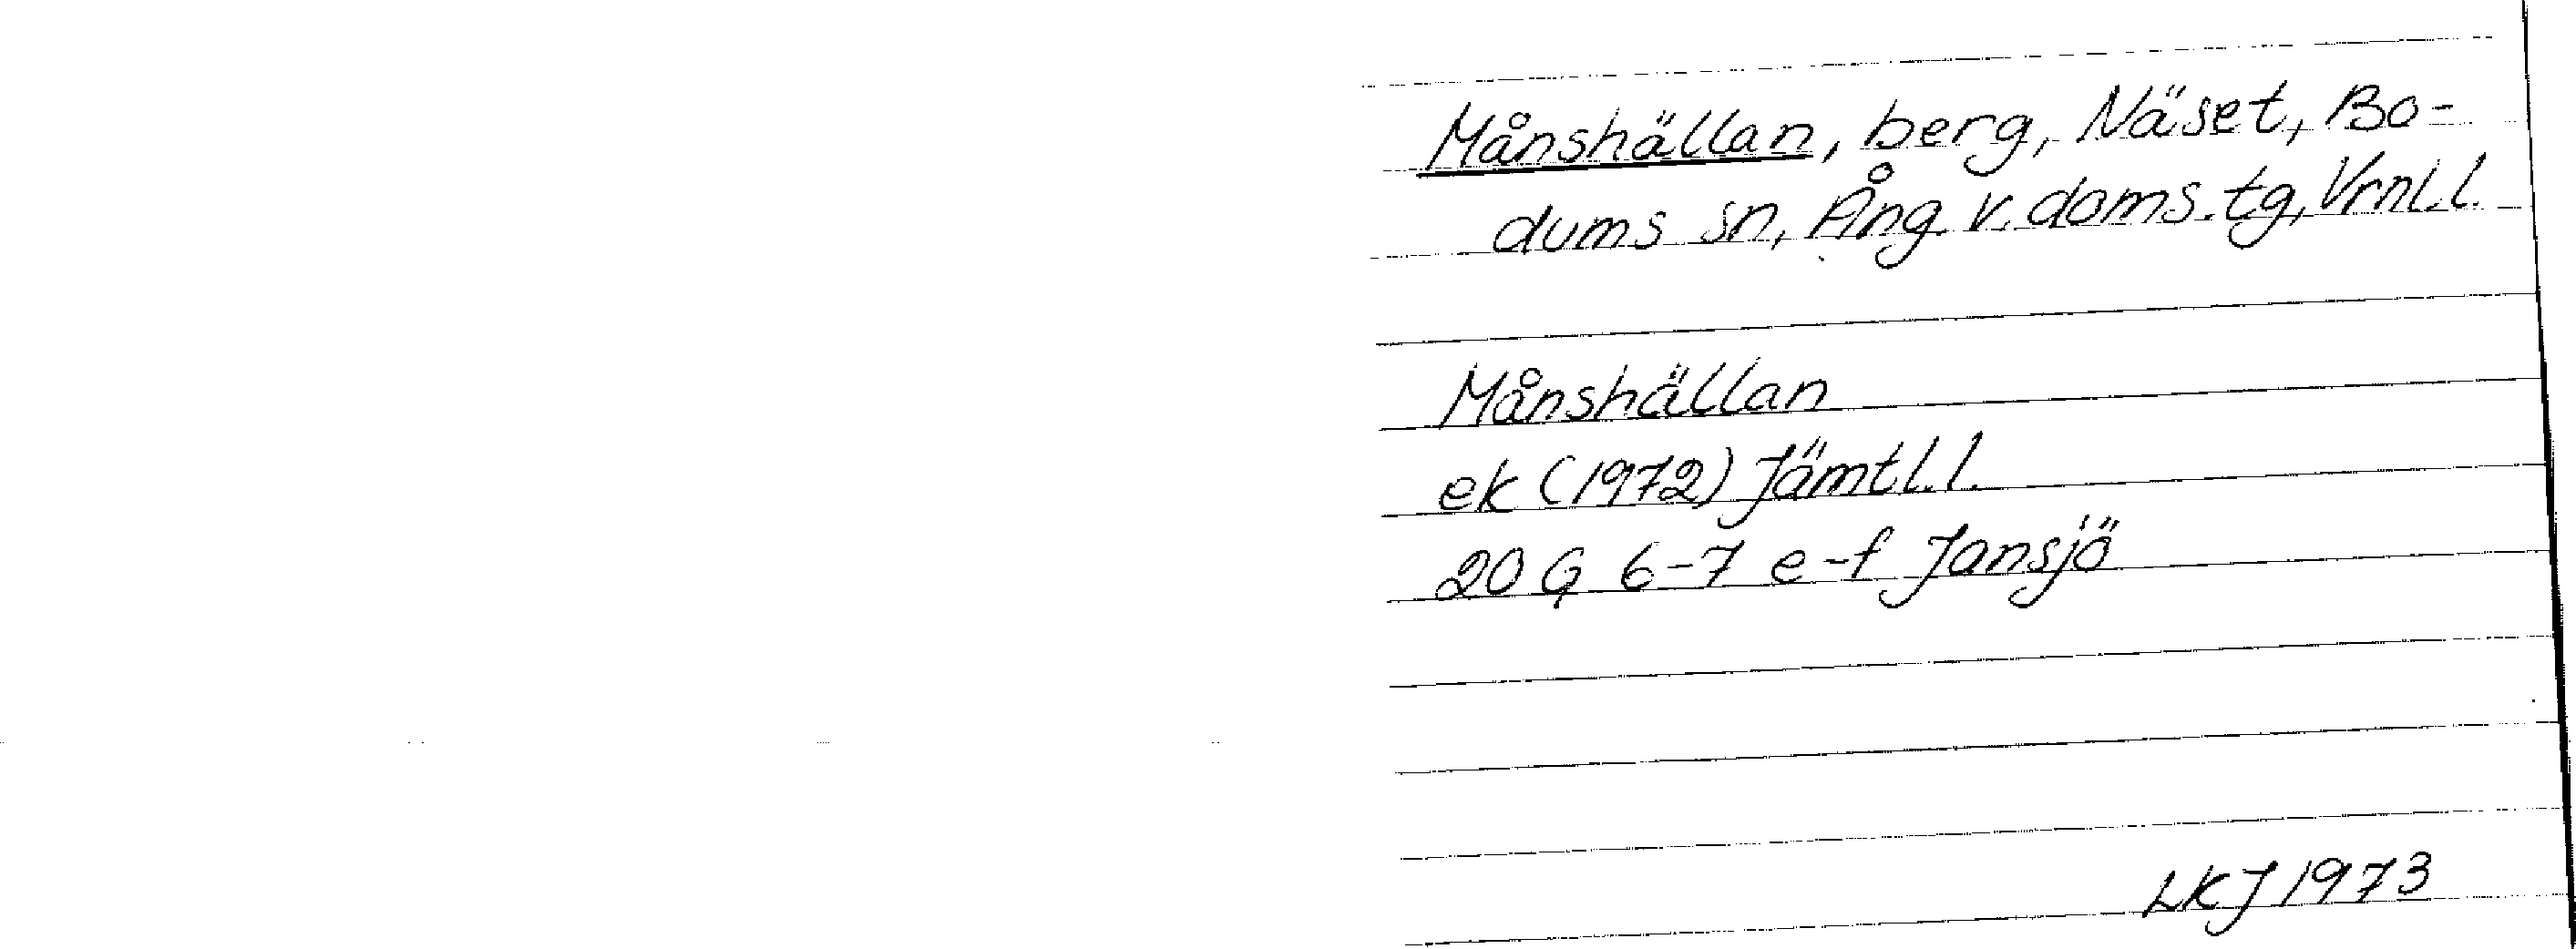 Månshällan, berg, Näset, Bo-
dums sn, Ång. v. doms. tg, Vrnl. l.
Månshällan
ek (1972) Jämtl. l.
20 G 6-7 e-f Jansjö
LKJ 1973